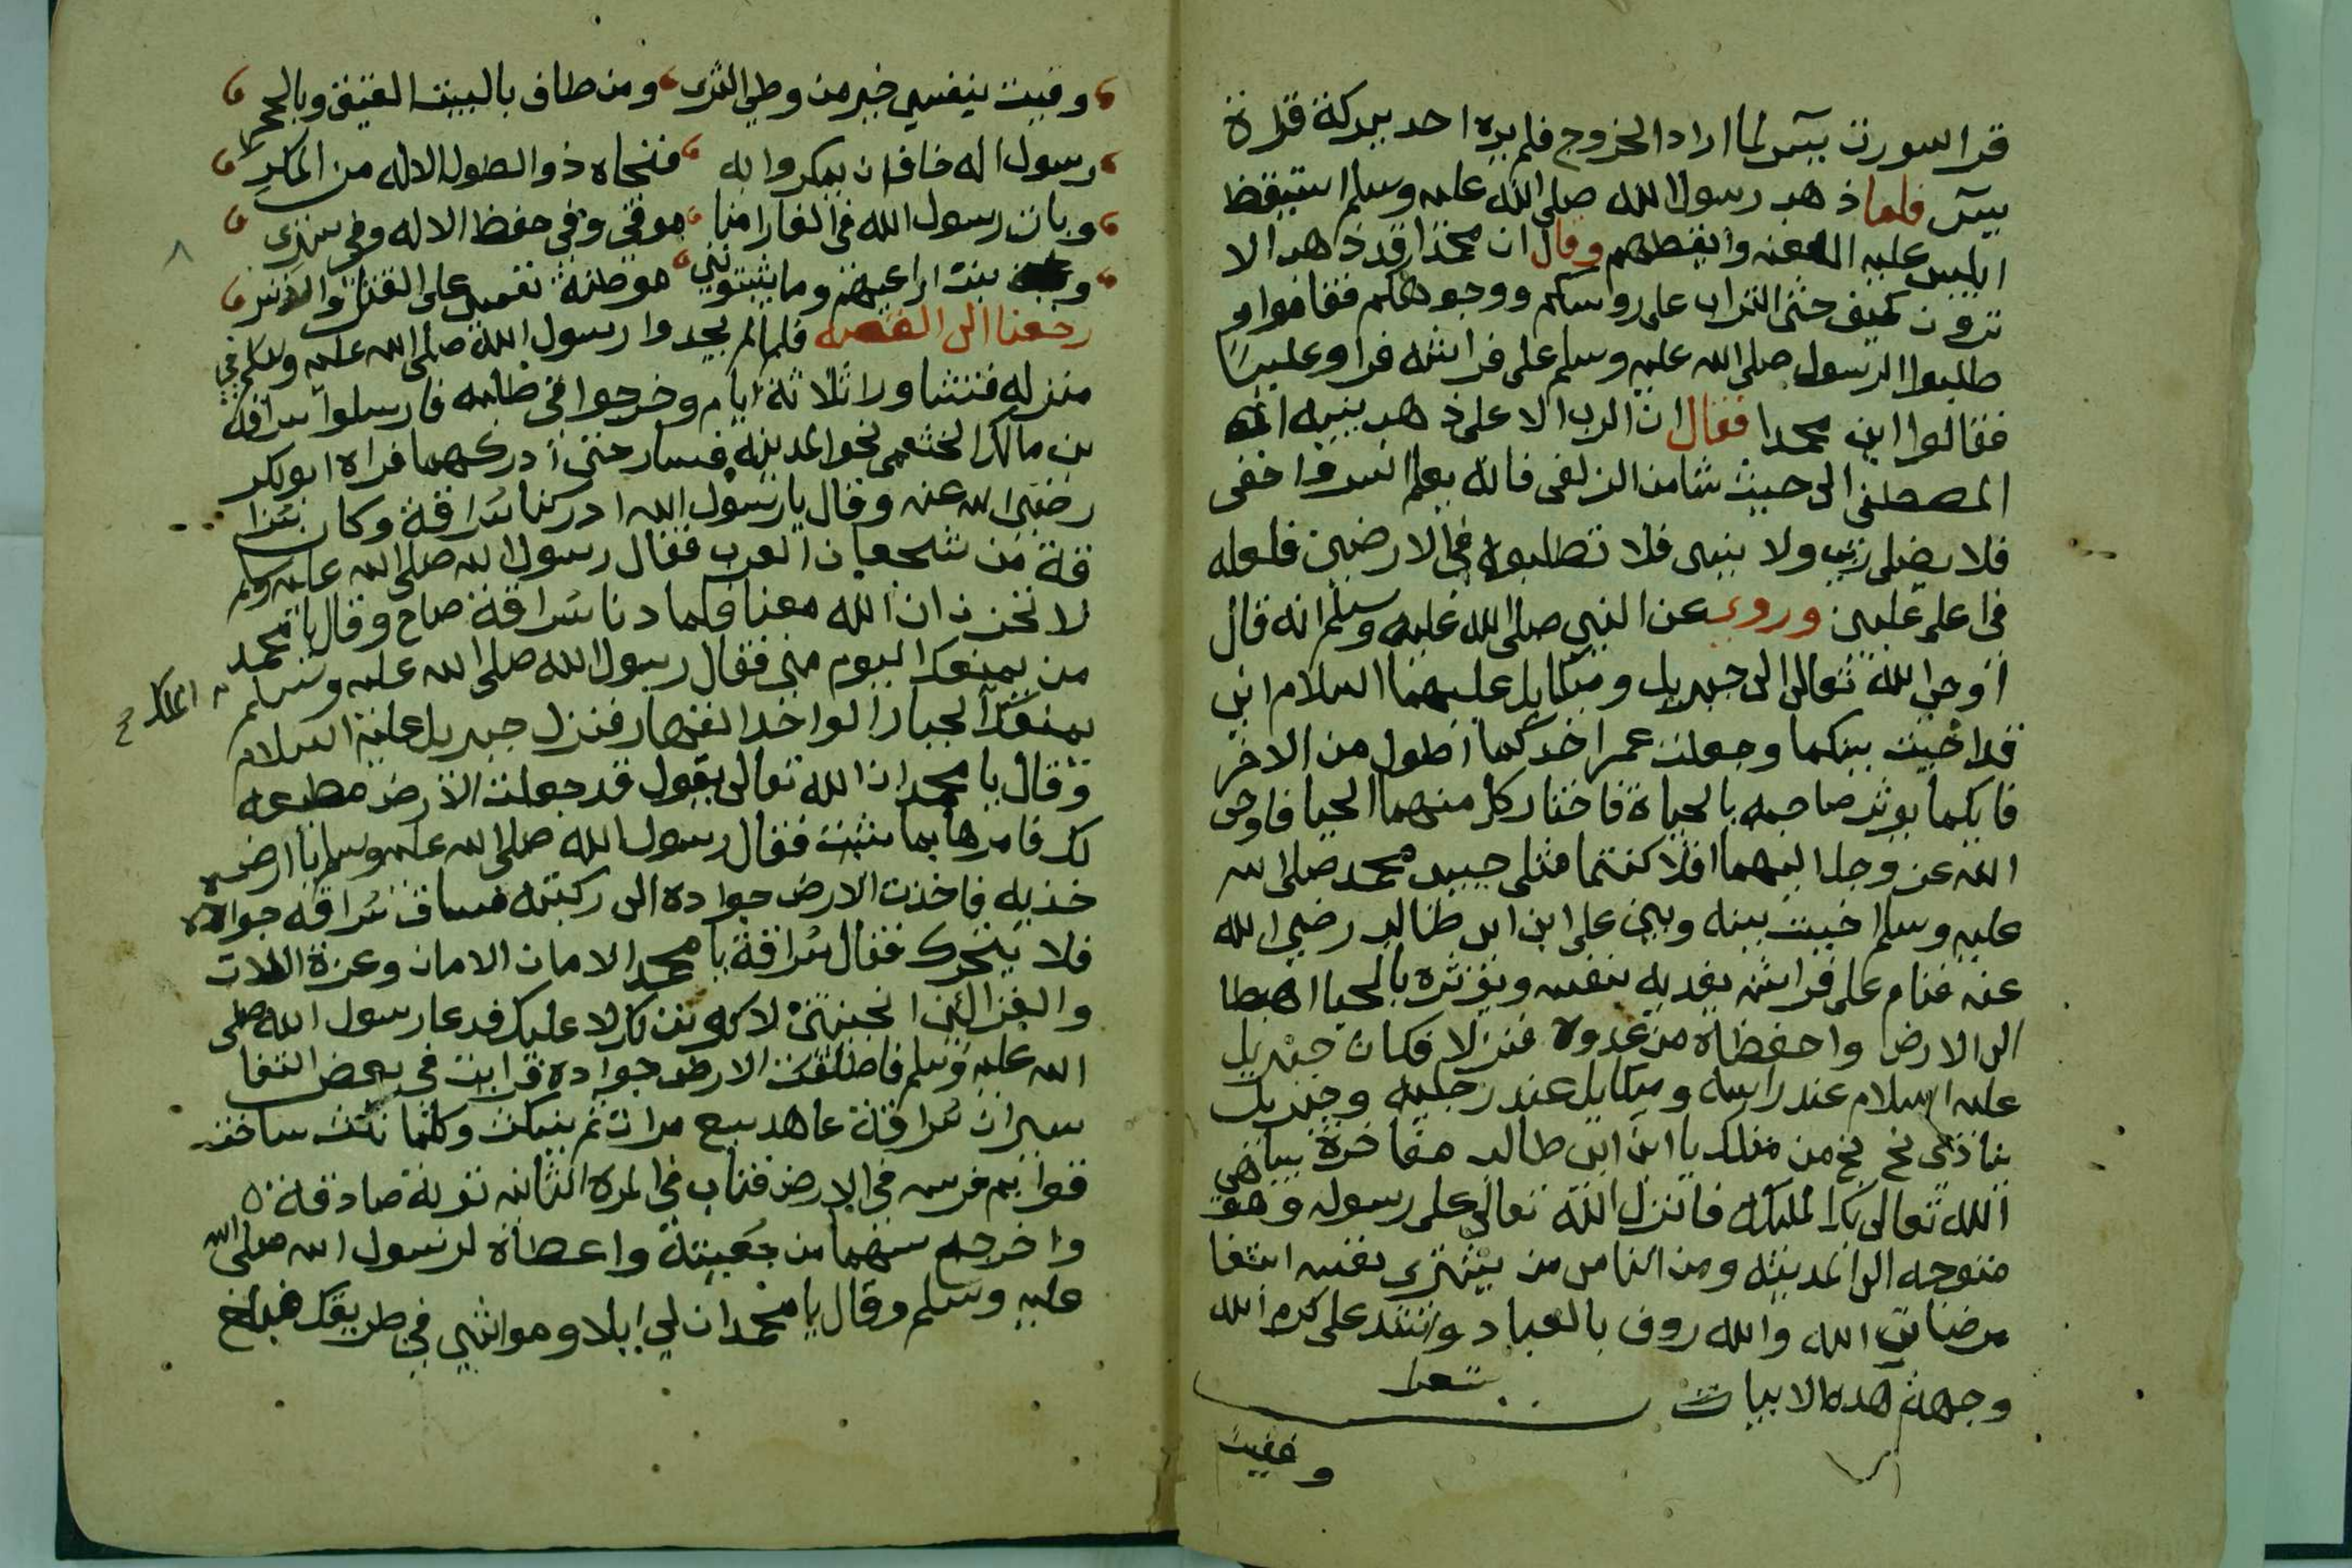 قرا سورت يس لما اراد الخروج فلم يره احد ببركة قراة
يس فلما ذهب رسول الله صلى الله عليه وسلم استيقظ
ابليس عليه اللعنه وايقظهم وقال ان محمدا قد ذهب الا
ترون كيف حثى التراب على رؤسكم ووجوهكم فقاموا و
طلبوا الرسول صلى الله عليه وسلم على فراشه فراو عليسا
فقالوا اين محمدا فقال ان الرب الاعلى ذهب بنبيه
المصطفى الى حيث شا من الزلفى فانه يعلم السر واخفى
فلا يضلى ربى ولا ينسى فلا تطلبوه في الارضين فلعله
في اعلى عليين وروى عن النبي صلى الله عليه وسلم انه قال
اوحى الله تعالى الى جبريل وميكايل عليهما السلام اني
قد اخيت بينكما وجعلت عمر احدكما اطول من الاخر
فايكما يوثر صاحبه بالحياة فاختار كل منهما الحيا فاوحى
الله عز وجل اليهما افلا كنتما مثلى حبيبى محمد صلى الله
عليه وسلم اخيت بينه وبين على ابن ابى طالب رضي الله
عنه فنام على فراشه يفديه بنفسه ويؤثره بالحيا اهبطا
الى الارض واحفظاه من عدوه فنزلا فكان جبريل
عليه السلام عند راسه وميكايل عند رجليه وجبريل
ينادى بخ بخ من مثلك يا ابن ابى طالب مفاخرة يباهى
الله تعالى بك الملايكه فانزل الله تعالى على رسوله وهو
متوجه الى المدينه ومن الناس من يشترى نفسه ابتغا
مرضات الله والله روف بالعباد وانشد على كرم الله
وجهه هذه الابيات شعر
وقيت
وقيت بنفسي خير من وطي الثرى ومن طاف بالبيت العتيق وبالحجر
رسول اله خاف ان يمكروا به فنجاه ذو الطول الاله من المكر
وبات رسول الله في الغار امنا موقي وفي حفظ الاله وفي ستر
وبت اراعيهم وما يثبتونني موطنة نفسى على القتل والاسر
رجعنا الى القصه فلما لم يجدوا رسول الله صلى الله عليه وسلم في
منزله فتشاوروا ثلاثة ايام وخرجوا في طلبه فارسلوا سراقه
بن مالك الخثعمي نحو المدينه فسار حتى ادركهما فراه ابو بكر
رضى الله عنه وقال يا رسول الله ادركنا سراقة وكان سرا
قة من شجعان العرب فقال رسول الله صلى الله عليه وسلم
لا تحزن ان الله معنا فلما دنا سراقة صاح وقال يا محمد
من يمنعك اليوم مني فقال رسول الله صلى الله عليه وسلم
يمنعك الجبار الواحد القهار فنزل جبريل عليه السلام
وقال يا محمد ان الله تعالى يقول قد جعلت الارض مطيعه
لك فامرها بما شئت فقال رسول الله صلى الله عليه وسلم يا ارض
خذيه فاخذت الارض جواده الى ركبته فساق سراقه جواده
فلا يتحرك فقال سراقة يا محمد الامان الامان وعزة اللات
والعزا لئن انجيتني لاكونن لك لا عليك فدعا رسول الله صلى
الله عليه وسلم فاطلقت الارض جواده قرايت في بعض التفا
سير ان سراقة عاهد سبع مرات ثم ينكث وكلما نكث ساخت
قوايم فرسه في الارض فتاب في المرة الثانيه توبة صادقة
واخرجه سهما من جعبته واعطاه لرسول الله صلى الله
عليه وسلم وقال يا محمد ان لي ابلا ومواشي في طريقك